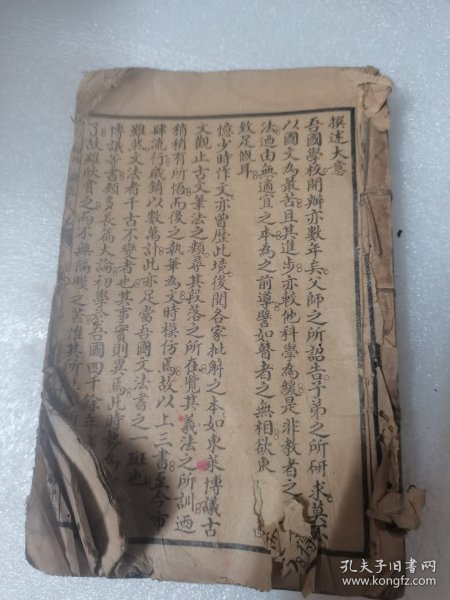 撰述大意
吾國學校開辦亦數年矣父師之所詔告子弟之所研求莫不
以國文為最苦且其進步亦較他科學為緩是非教者之
法迺由無適宜之本為之前導譬如瞽者之無相欲東
致足慨耳
憶少時作文亦曾歷此境後閱各家批解之本如東萊博議古
文觀止古文筆法之類尋其段落之所在覽其義法之所訓迺
稍稍有所悟而後之執筆為文時模仿焉故以上三書至今市
肆流行歲銷以數萬計此亦足當吾國文法書之一斑也
雖然文法者千古不變者也其事實則異焉此時勢為
博議等書類多長篇大論初學於吾國四千餘年書
故雖欣賞之而不無隔膜之苦惟其所上
孔夫子旧书网
www.kongfz.com